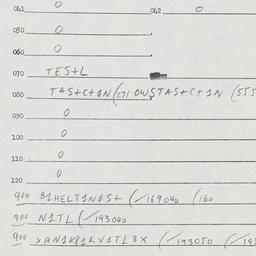 041 0 042 0
050 0
060 0
070 TES+L
080 TAS+C+1N (271 OWSTAS+C+1N (555
090 0
100 0
110 0
120 0
900 B1HELT1N1S+ (/169040 (160
900 N1TL (/193040
900 (/193050 (/193